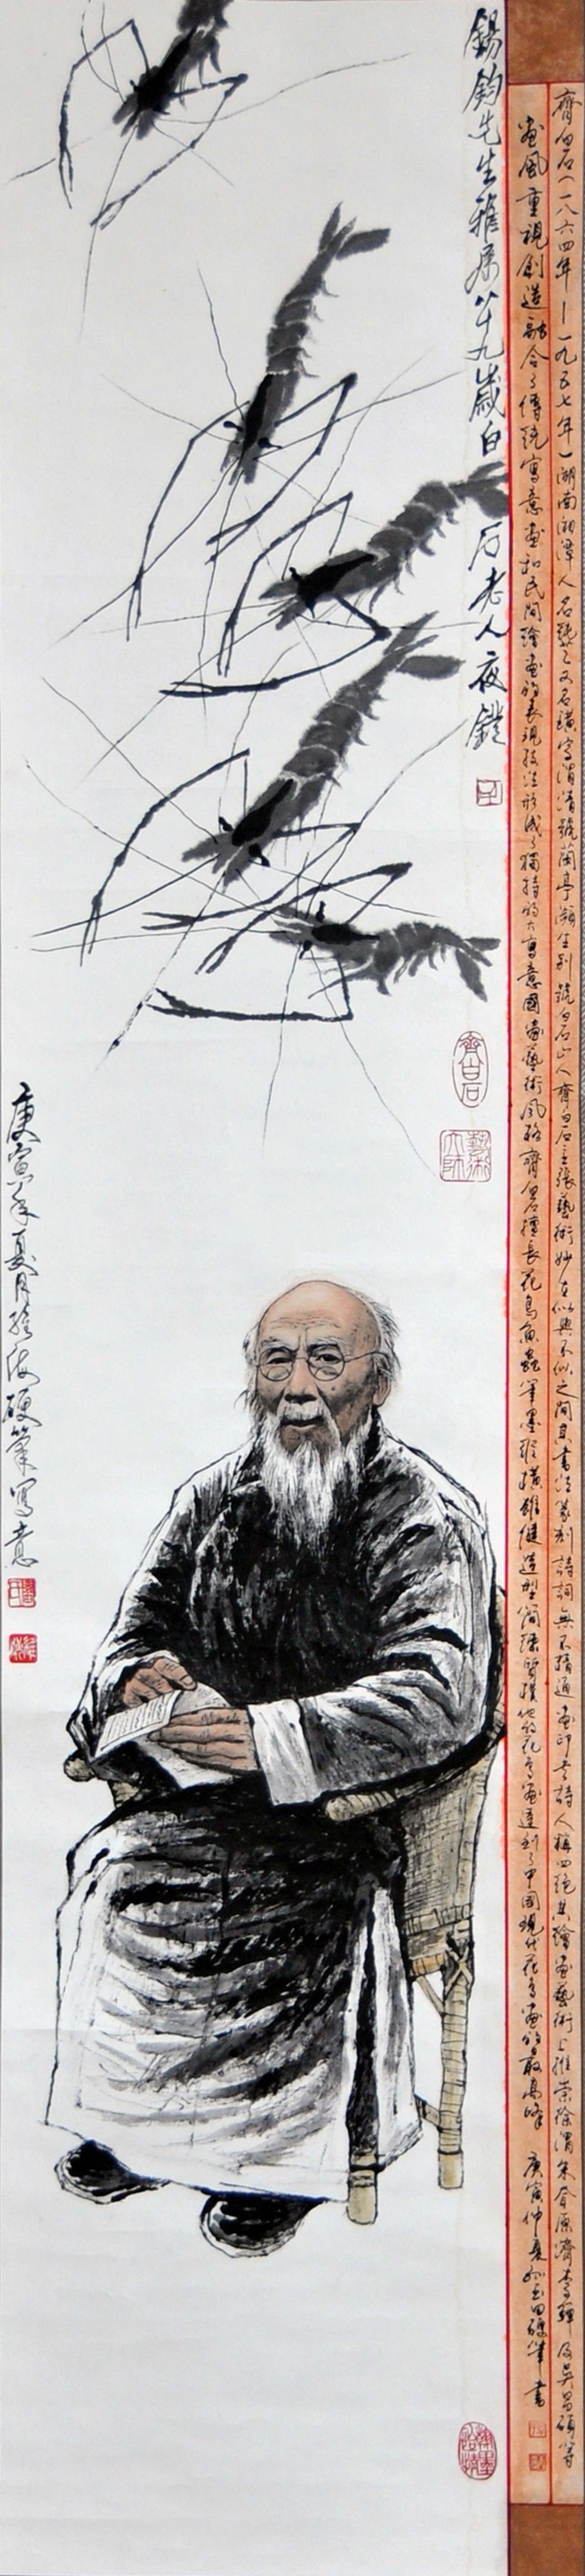 齊白石（一八六四年－一九五七年）湖南湘潭人名璜字渭清號蘭亭瀕生別號白石山人齊白石主張藝術妙在似與不似之間其書法篆刻詩詞無不精通畫印書詩人稱四絕其繪畫藝術上推崇徐渭朱耷原濟李鱓及吳昌碩等
畫風重視創造融合了傳統寫意畫和民間繪畫的表現技法形成了獨特的大寫意國畫藝術風格齊白石擅長花鳥魚蟲筆墨縱橫雄健造型簡練質樸他的花鳥畫達到了中國現代花鳥畫的最高峰 庚寅仲夏 硬筆書
錫鈞先生雅屬八十九歲白石老人夜鐙
齊白石
藝術大師
庚寅年夏月 硬筆寫意